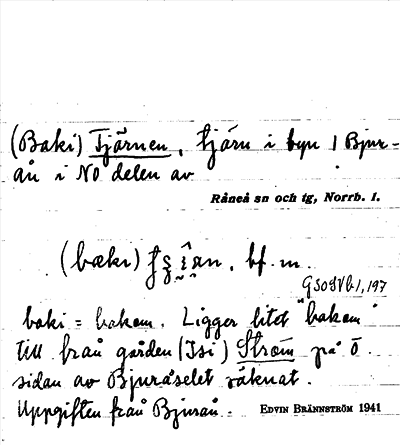 (Baki) Tjärnen, tjärn i byn Bjur-
ån i NO delen av
Råneå sn och tg, Norrb. l.
(bæki) bf. m.
GSOSVb1, 197
baki = bakom. Ligger litet "bakom"
till från gården (Isi) Ström på ö.
sidan av Bjuråselet räknat.
Uppgiften från Bjurån. EDVIN BRÄNNSTRÖM 1941